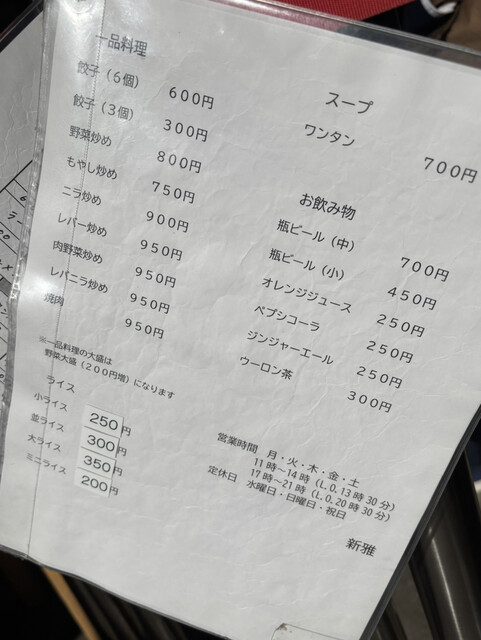 一品料理
餃子（6個） 600円
餃子（3個） 300円
野菜炒め 800円
もやし炒め 750円
ニラ炒め 900円
レバー炒め 950円
肉野菜炒め 950円
レバニラ炒め 950円
焼肉 950円
※一品料理の大盛は
野菜大盛（200円増）になります
ライス
小ライス 250円
並ライス 300円
大ライス 350円
ミニライス 200円
スープ
ワンタン 700円
お飲み物
瓶ビール（中） 700円
瓶ビール（小） 450円
オレンジジュース 250円
ペプシコーラ 250円
ジンジャーエール 250円
ウーロン茶 300円
営業時間 月・火・木・金・土
11時～14時（L.O.13時30分）
17時～21時（L.O.20時30分）
定休日 水曜日・日曜日・祝日
新雅